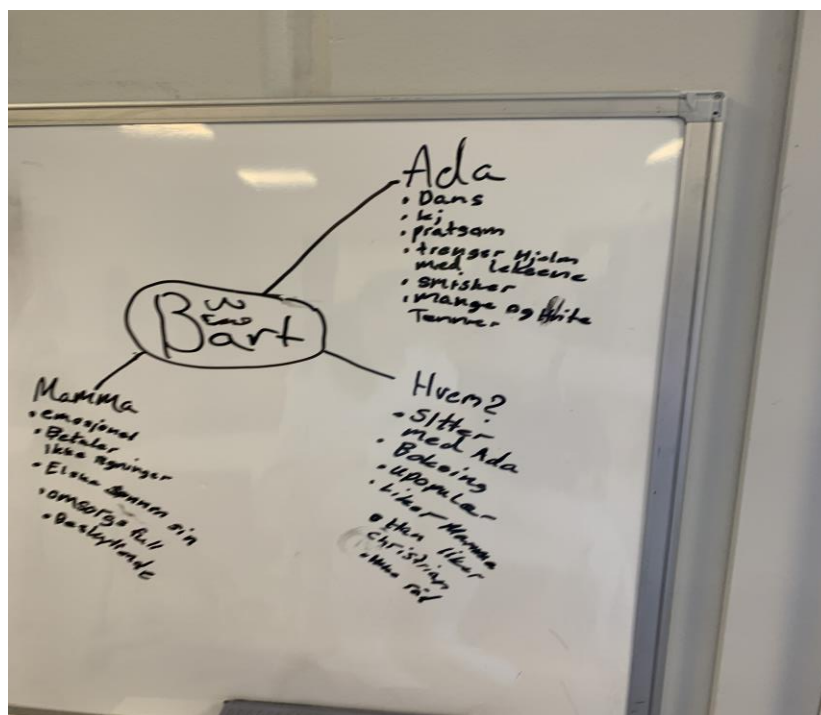 Ada
• Dans
• kj
• pratsom
• trenger Hjelm
med leksene
• smisker
• mange og Hvite
Tenner
Bart
Mamma
• emosjonel
• Betaler
ikke regninger
• Elske sønnen sin
• omsorgsfull
• Beskyttende
Hvem?
• Sitter
med Ada
• Boksing
• upopulær
• Liker Mamma
• Han liker
christian
• ikke råd